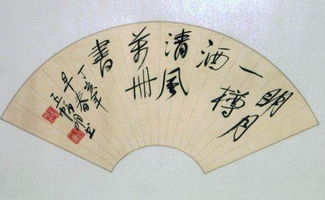 明月
一樽
酒
清風
萬冊
書
丁亥年
早春